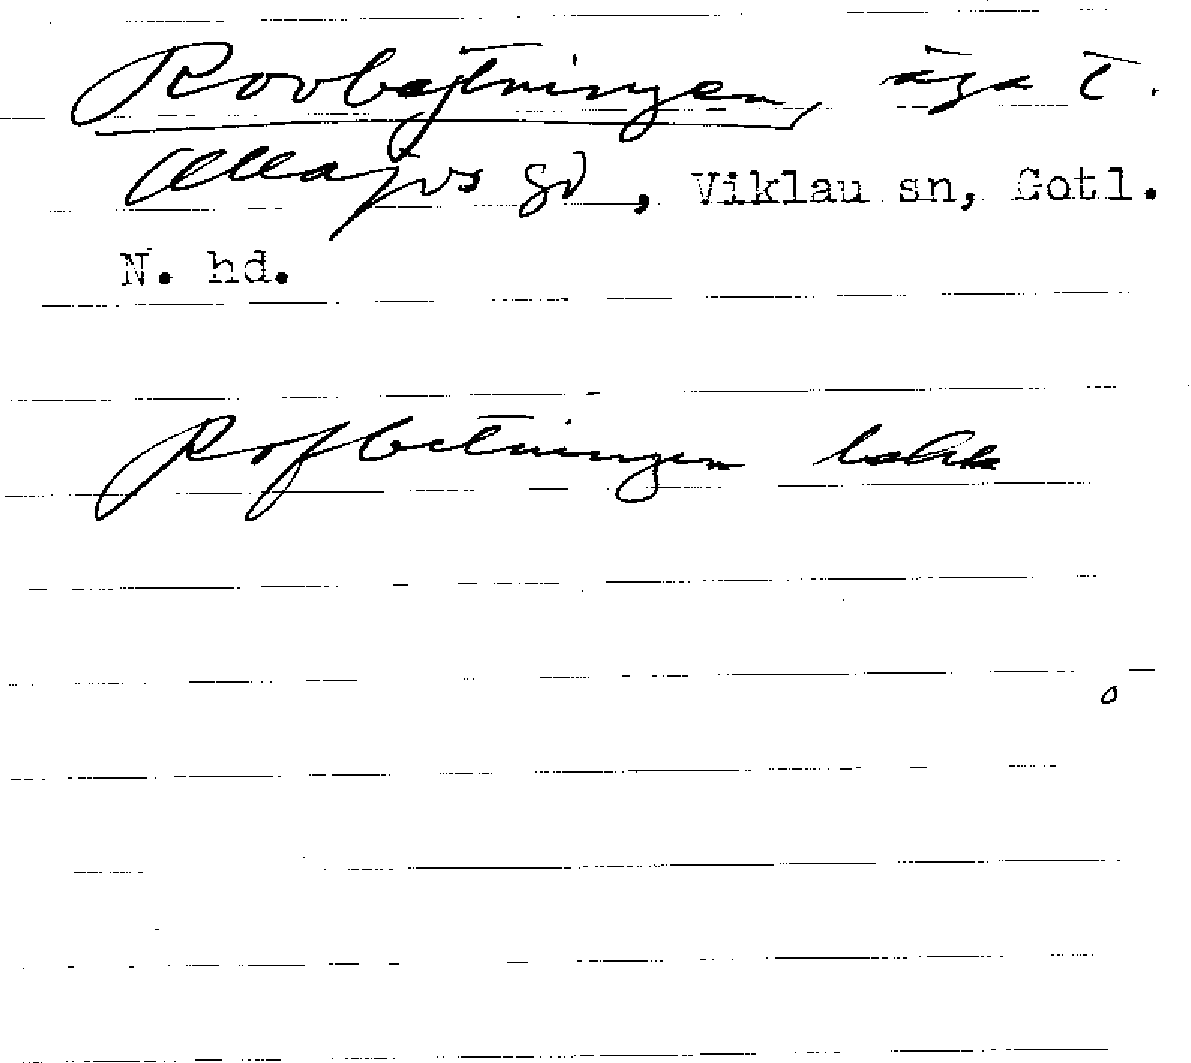 Rovbajtningen, äga t.
Allajvs gd, Viklau sn, Gotl.
N. hd.
Rofbetningen